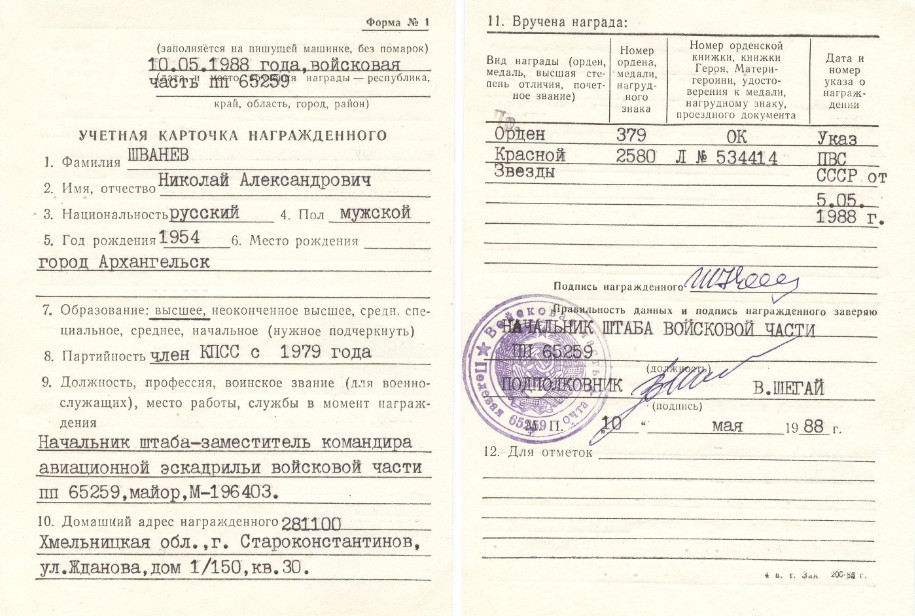 Форма № 1
(заполняется на пишущей машинке, без помарок)
10.05.1988 года,войсковая
часть пп 65259
(дата и место вручения награды — республика,
край, область, город, район)
УЧЕТНАЯ КАРТОЧКА НАГРАЖДЕННОГО
1. Фамилия ШВАНЕВ
2. Имя, отчество Николай Александрович
3. Национальность русский 4. Пол мужской
5. Год рождения 1954 6. Место рождения
город Архангельск
7. Образование: высшее, неоконченное высшее, средн. спе-
циальное, среднее, начальное (нужное подчеркнуть)
8. Партийность член КПСС с 1979 года
9. Должность, профессия, воинское звание (для военно-
служащих), место работы, службы в момент награж-
дения
Начальник штаба-заместитель командира
авиационной эскадрильи войсковой части
пп 65259,майор,М-196403.
10. Домашний адрес награжденного 281100
Хмельницкая обл.,г. Староконстантинов,
ул.Жданова,дом 1/150,кв.30.
11. Вручена награда:
Вид награды (орден,
медаль, высшая сте-
пень отличия, почет-
ное звание)
Номер
ордена,
медали,
нагруд-
ного
знака
Номер орденской
книжки, книжки
Героя, Матери-
героини, удосто-
верения к медали,
нагрудному знаку,
проездного документа
Дата и
номер
указа о
награж-
дении
Орден 379 ОК Указ
Красной 2580 Л № 534414 ПВС
Звезды СССР от
5.05.
1988 г.
Подпись награжденного
Правильность данных и подпись награжденного заверяю
НАЧАЛЬНИК ШТАБА ВОЙСКОВОЙ ЧАСТИ
ПП 65259
(должность)
ПОДПОЛКОВНИК В.ШЕГАЙ
(подпись)
М. П. „10 " мая 1988 г.
Войсковая часть
Полевая почта 65259
12. Для отметок